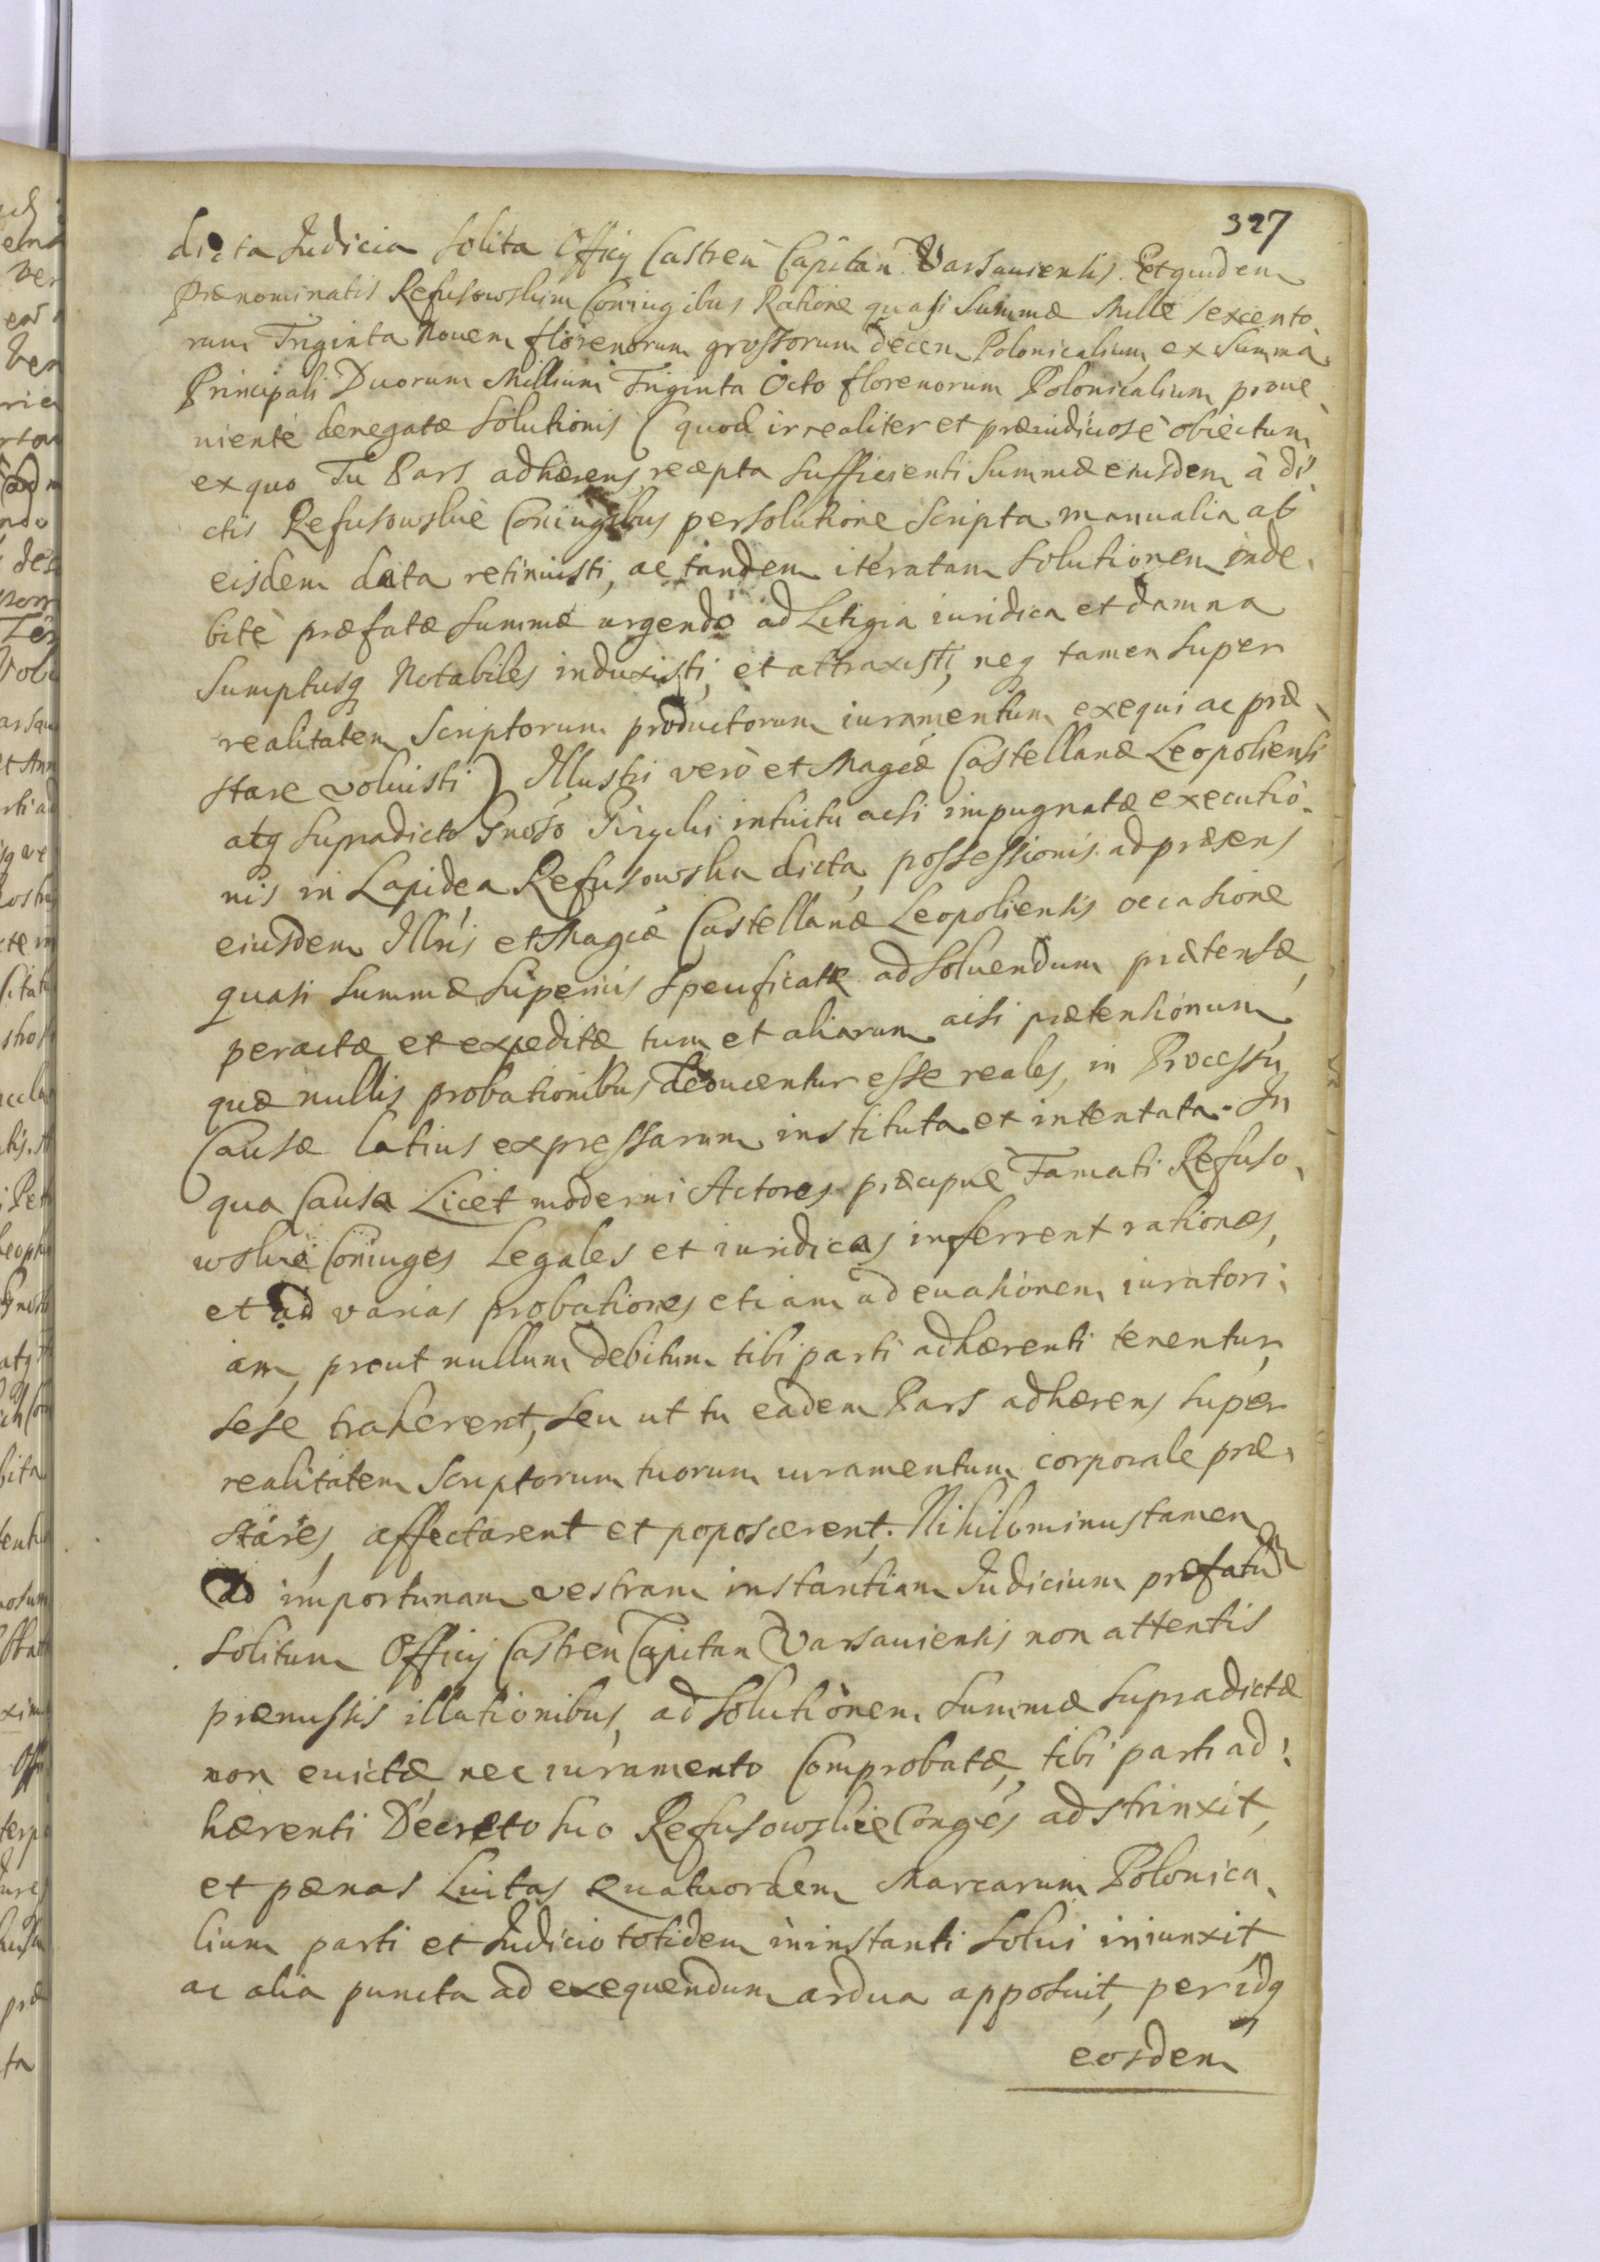 327
dicta Judicia Solita Officij Castren Capitan Varsauiensis. Et quidem
prænominatis Refusowskim Coniugibus Ratione quasi Summæ Mille sexcento,
rum Triginta Nouem florenorum grossorum decem Polonicalium, ex Summa
Principali Duorum Millium Triginta Octo florenorum Polonicalium proue,
niente denegatæ Solutionis ( quod irrealiter et præiudiciosè obiectum
ex quo Tu Pars adhærens, recepta sufficienti Summæ eiusdem à di,
ctis Refusowskie Coniugibus persolutione, Scripta manualia ab
eisdem data retinuisti, ac tandem iteratam Solutionem inde,
bitè præfatæ Summæ urgendo ad Litigia iuridica et damna
Sumptusq Notabiles induxisti, et attraxisti, neq tamen super
realitatem Scriptorum productorum iuramentum exequi ac præ,
stare voluisti ) Illustri verò et Magcæ Castellanæ Leopoliensi
atq supradicto Gnoso Pirychi intuitu acsi impugnatæ executio,
nis in Lapidea Refusowska dicta, possessionis ad præsens
eiusdem Illris et Magcæ Castellanæ Leopoliensis occasione
quasi Summæ superius specificatæ ad soluendum prætensæ,
peractæ et expeditæ tum et aliarum acsi prætensionum
quæ nullis probationibus deducentur esse reales, in Processu
Causæ latius expressarum instituta et intentata. In
qua Causa Licet moderni Actores præcipuè Famati Refuso,
wskie Coniuges Legales et iuridicas inferrent rationes,
et ad varias probationes etiam ad euasionem iuratori,
am, prout nullum debitum tibi parti adhærenti tenentur,
sese traherent, seu ut tu eadem Pars adhærens super
realitatem scriptorum tuorum iuramentum corporale præ,
stares, affectarent et poposcerent. Nihilominus tamen
ad importunam vestram instantiam Judicium præfatum
solitum Officij Castren Capitan Varsauiensis non attentis
præmissis illationibus, ad solutionem Summæ supradictæ
non euictæ nec iuramento Comprobatæ, tibi parti ad,
hærenti Decreto suo Refusowskie Conges adstrinxit,
et pænas Luitas Quatuordem Marcarum Polonica,
lium parti et Judicio totidem ininstanti solui iniunxit
ac alia puncta ad exequendum ardua apposuit, per idq
eosdem